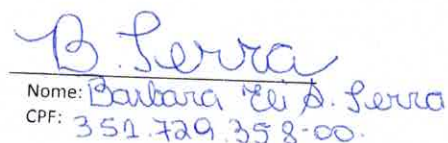 B. Serra
Nome: Barbara Eli S. Serra
CPF: 351.729.358-00.